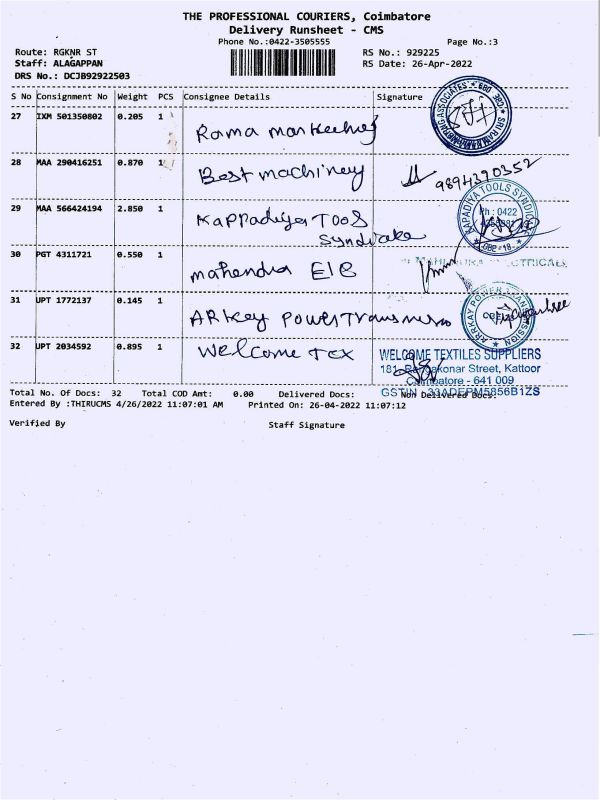 THE PROFESSIONAL COURIERS, Coimbatore
Delivery Runsheet - CMS
Phone No.:0422-3505555 Page No.:3
Route: RGKNR ST RS No.: 929225
Staff: ALAGAPPAN RS Date: 26-Apr-2022
DRS No.: DCJB92922503
S No Consignment No Weight PCS Consignee Details Signature
27 IXM 501350802 0.205 1 Rama
28 MAA 290416251 0.870 1 Best machinery 9894390352
29 MAA 566424194 2.850 1 Kappadiya Tools
Syndicate
KAPADIYA TOOLS SYNDICATE
Ph : 0422
30 PGT 4311721 0.550 1 mahendra E/B
31 UPT 1772137 0.145 1 ARkey Power
ARKAY POWER TRANSMISSION
CBE
32 UPT 2034592 0.895 1 Welcome Tex
WELCOME TEXTILES SUPPLIERS
181, Street, Kattoor
Coimbatore - 641 009
GSTIN : 33ADEPM5856B1ZS
Total No. Of Docs: 32 Total COD Amt: 0.00 Delivered Docs: Non Delivered Docs:
Entered By :THIRUCMS 4/26/2022 11:07:01 AM Printed On: 26-04-2022 11:07:12
Verified By Staff Signature